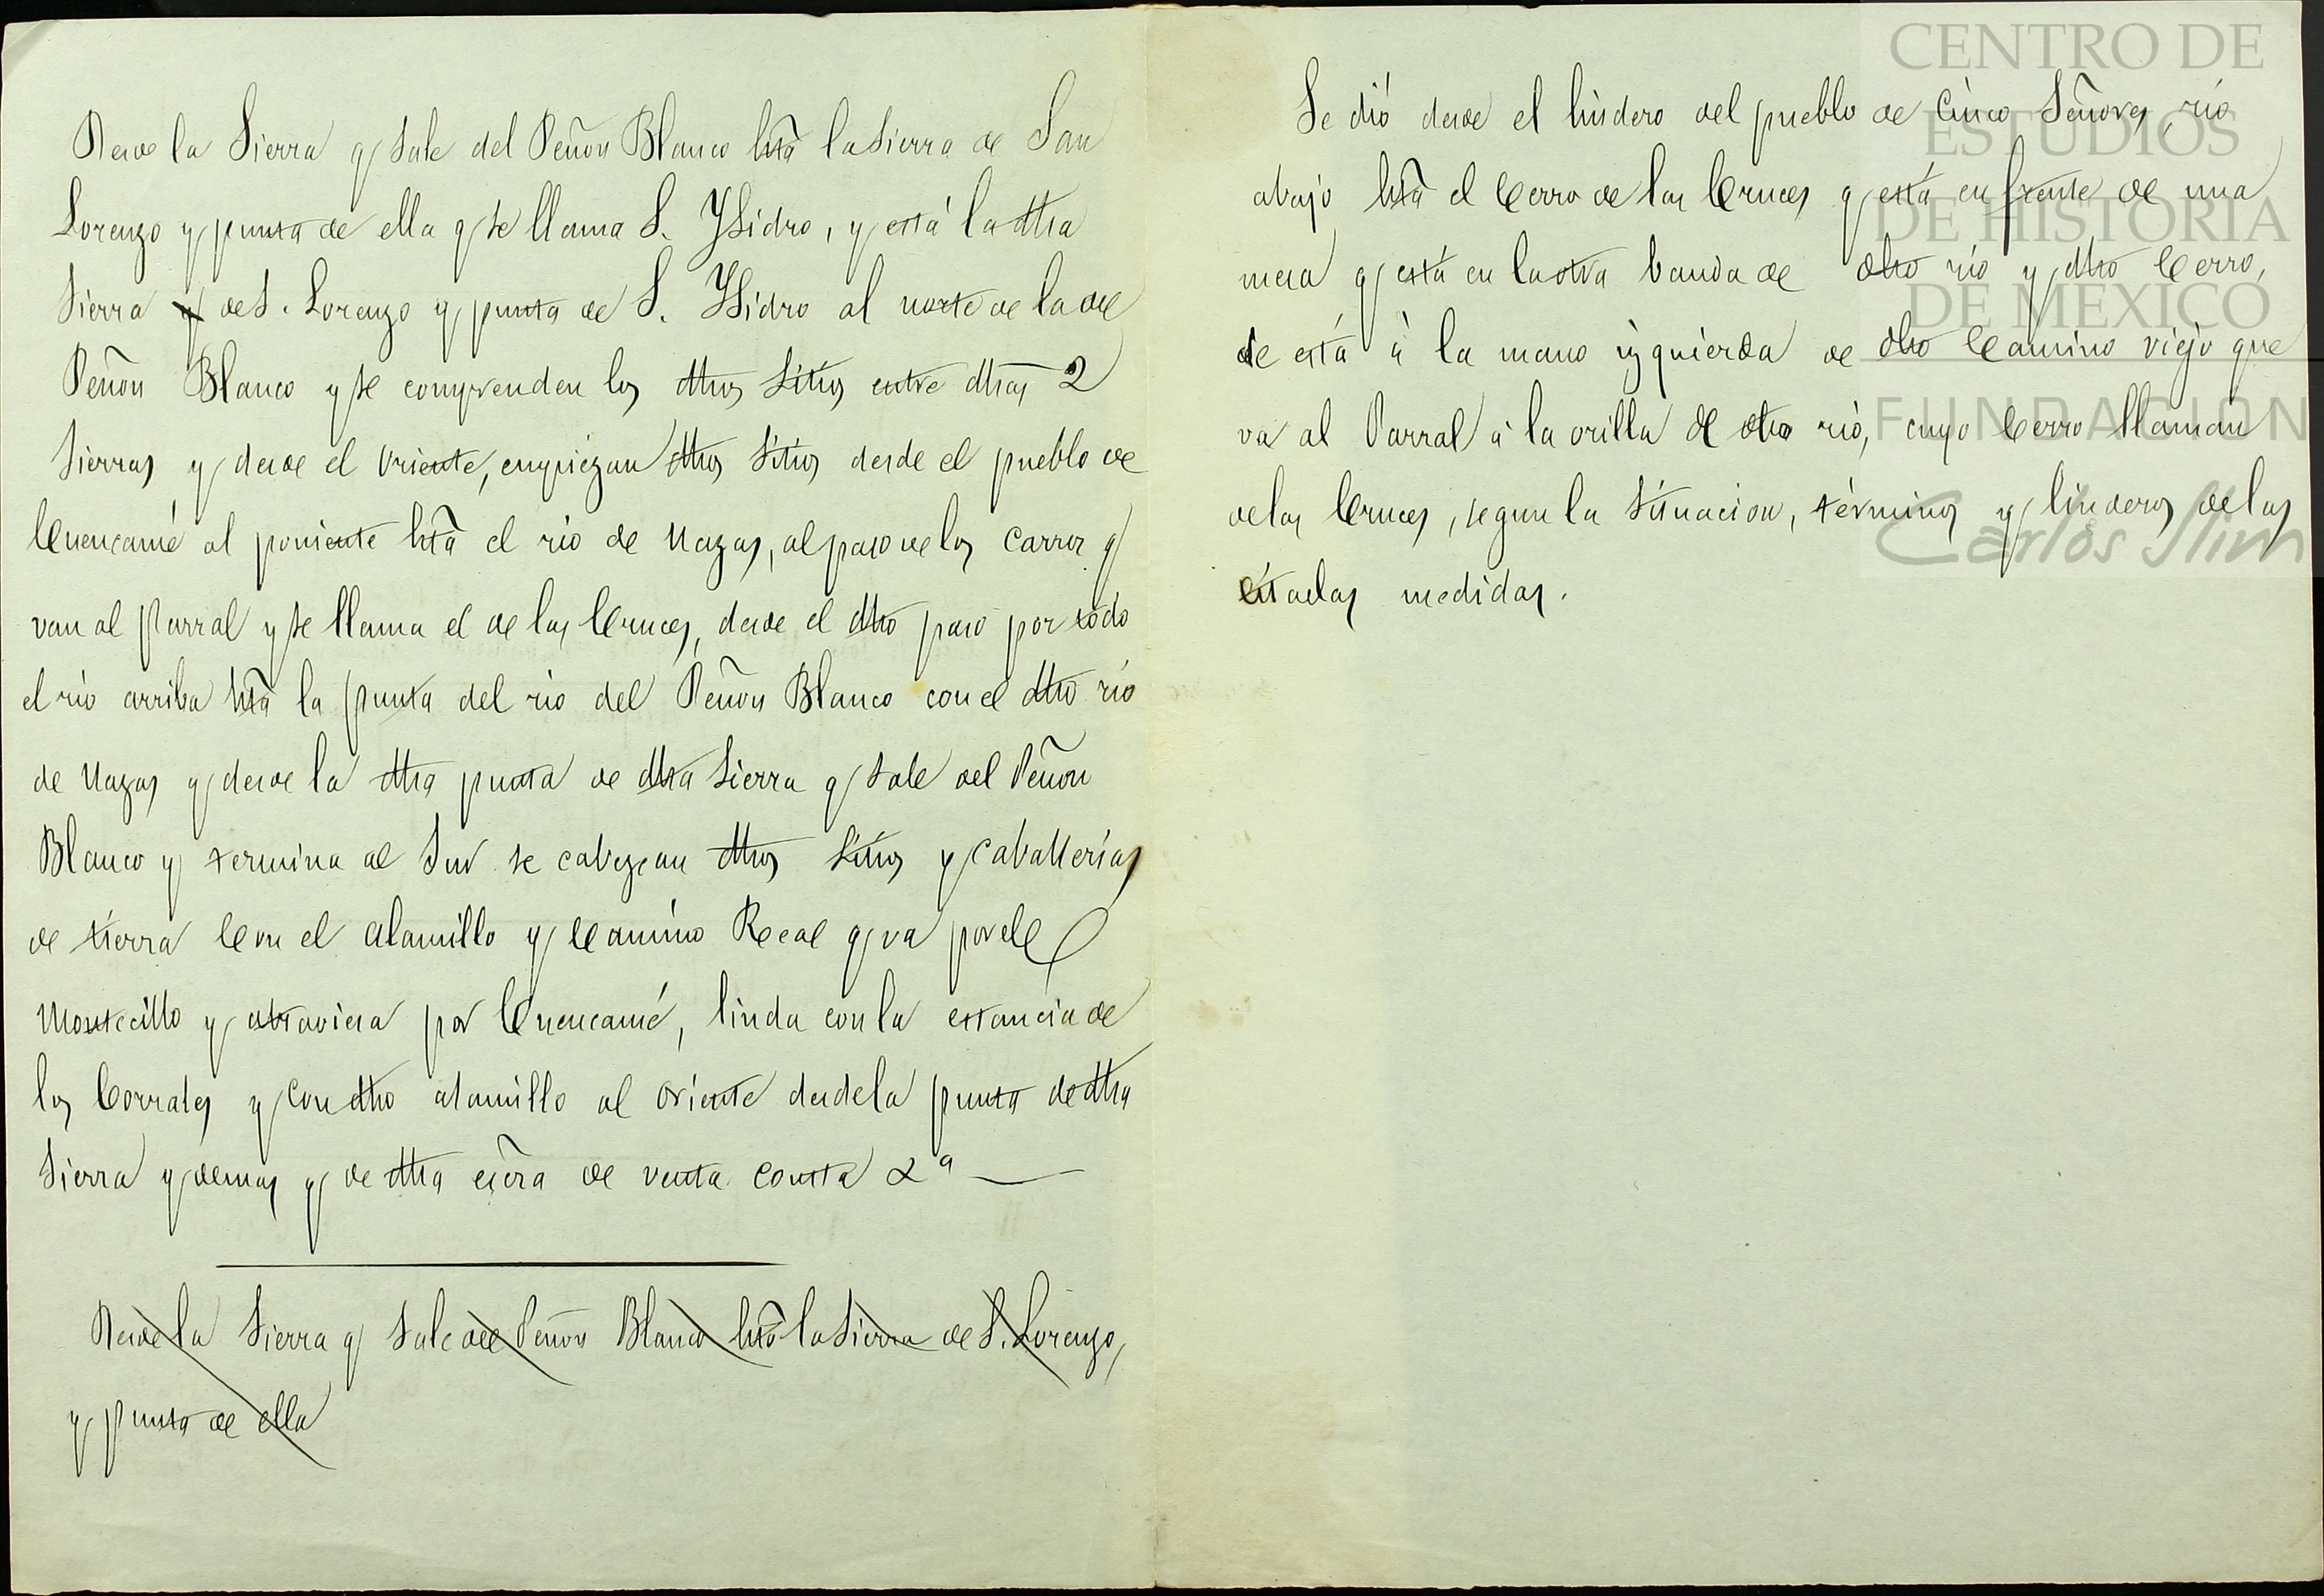 Desde la Sierra q sale del Peñon Blanco htã la Sierra de San
Lorenzo y punta de ella q se llama S. Ysidro, y está la dha
Sierra de S. Lorenzo y punta de S. Ysidro al norte de la del
Peñon Blanco y se comprenden los dhos sitios entre dhas 2
Sierras y desde el oriente, empiezan dhos sitios desde el pueblo de
Cuencamé al poniente htã el rio de Nazas, al paso de los carros q
van al Parral y se llama el de las Cruces, desde el dho paso por todo
el rio arriba htã la punta del rio del Peñon Blanco con el dho rio
de Nazas y desde la dha punta de dha Sierra q sale del Peñon
Blanco y termina al Sur se cabezean dhos sitios y caballerias
de tierra con el Alamillo y Camino Real q va por el
Montecillo y atraviesa por Cuencamé, linda con la estancia de
los Corrales y con dho alamillo al oriente desde la punta de dha
Sierra y demas q de dha escra de venta consta 2ª
Desde la Sierra q sale del Peñon Blanco htã la Sierra de S. Lorenzo,
y punta de ella
Se dió desde el lindero del pueblo de Cinco Señores, rio
abajo htã el Cerro de las Cruces q está en frente de una
mesa q está en la otra banda de dho rio y dho Cerro,
se está à la mano izquierda de dho Camino viejo que
va al Parral à la orilla de dho rio, cuyo Cerro llaman
de las Cruces, segun la situacion, términos y linderos de las
citadas medidas.
CENTRO DE
ESTUDIOS
DE HISTORIA
DE MEXICO
FUNDACION
Carlos Slim